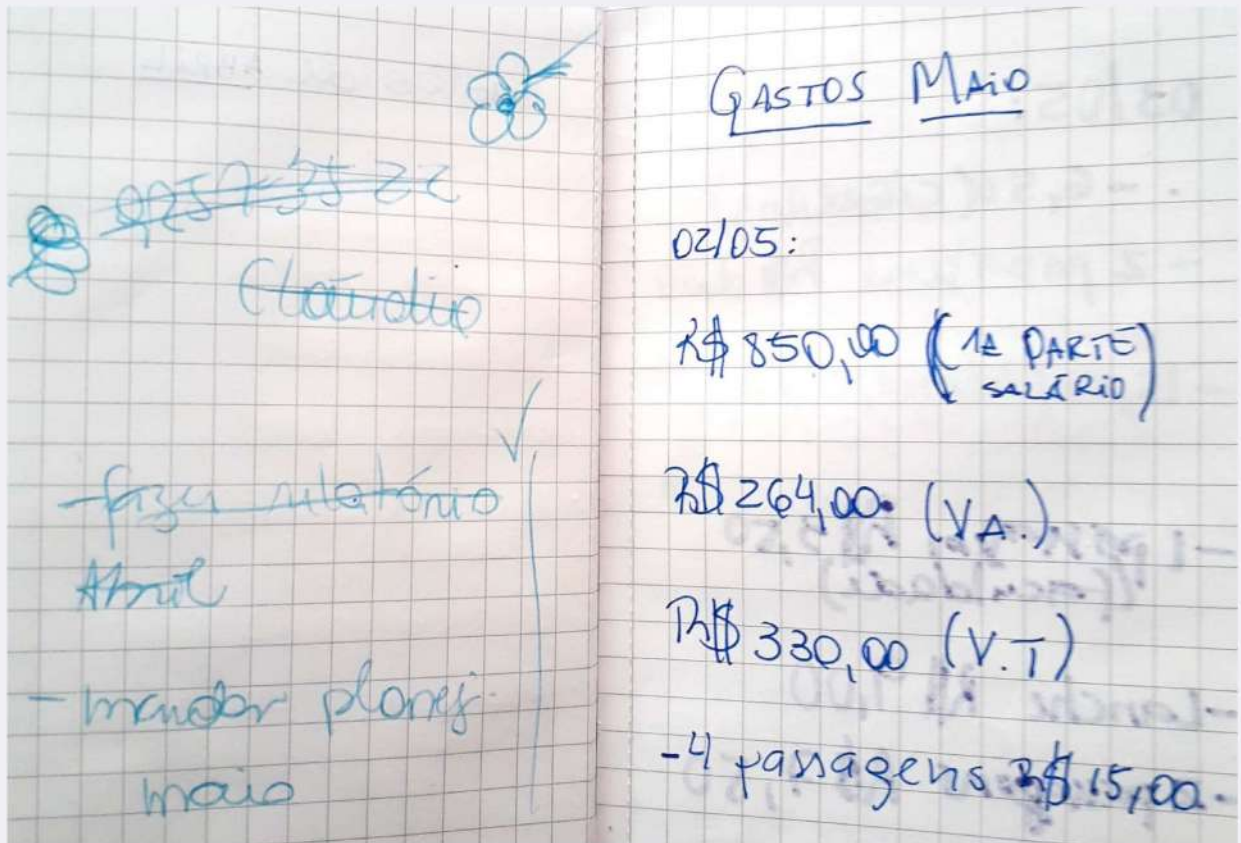 9257-3522
Claúdio
-fazer relatório
Abril
- mandar planej.
maio
GASTOS MAIO
02/05:
R$ 850,00 (1ª PARTE
SALÁRIO)
R$ 264,00. (V.A.)
R$ 330,00 (V.T)
-4 passagens R$ 15,00.